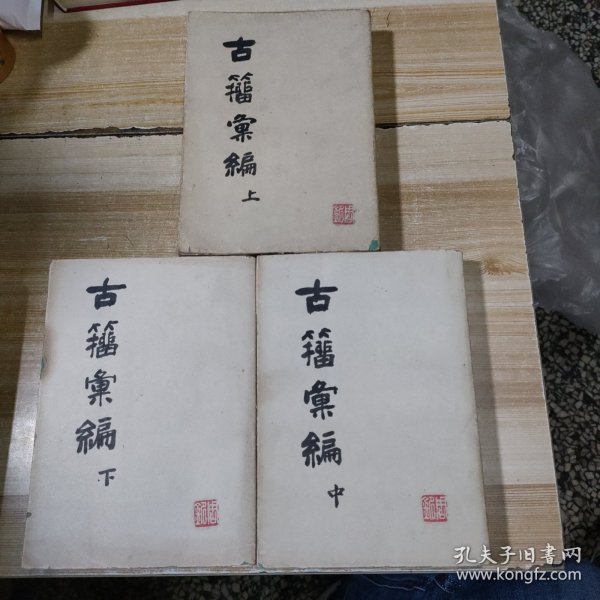 古籀彙編
上
古籀彙編
下
古籀彙編
中
孔夫子旧书网
www.kongfz.com